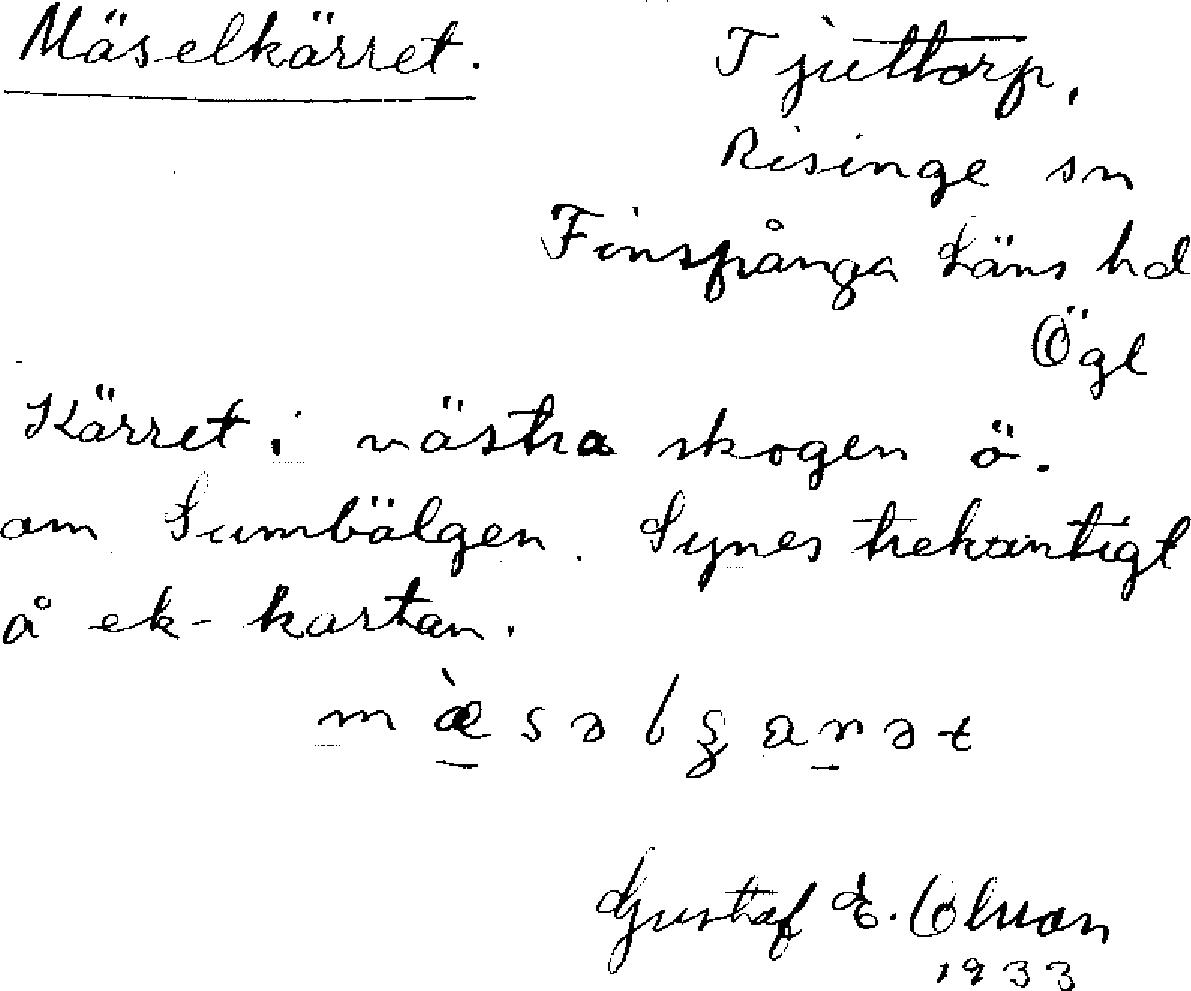 Mäselkärret.
Tjuttorp,
Risinge sn
Finspånga Läns hd
Ögl
Kärret i västra skogen ö.
om Sumbälgen. Synes trekantigt
å ek-kartan.
Gustaf E. Olsson
1933